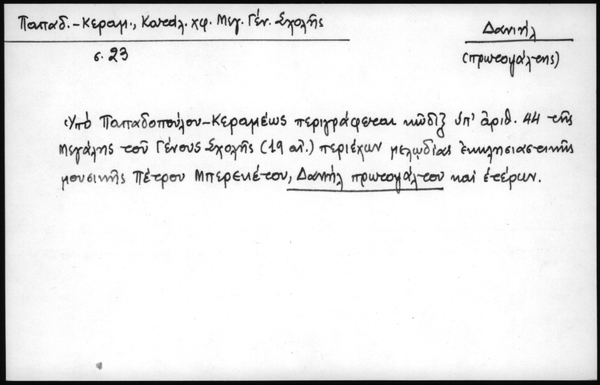 Παπαδ.-Κεραμ., Καταλ. χφ. Μεγ. Γέν. Σχολῆς
Δανιήλ
σ. 23
(πρωτοψάλτης)
Ὑπὸ Παπαδοπούλου-Κεραμέως περιγράφεται κῶδιξ ὑπ' ἀριθ. 44 τῆς
Μεγάλης τοῦ Γένους Σχολῆς (19 αἰ.) περιέχων μελῳδίας ἐκκλησιαστικῆς
μουσικῆς Πέτρου Μπερεκέτου, Δανιὴλ πρωτοψάλτου καὶ ἑτέρων.